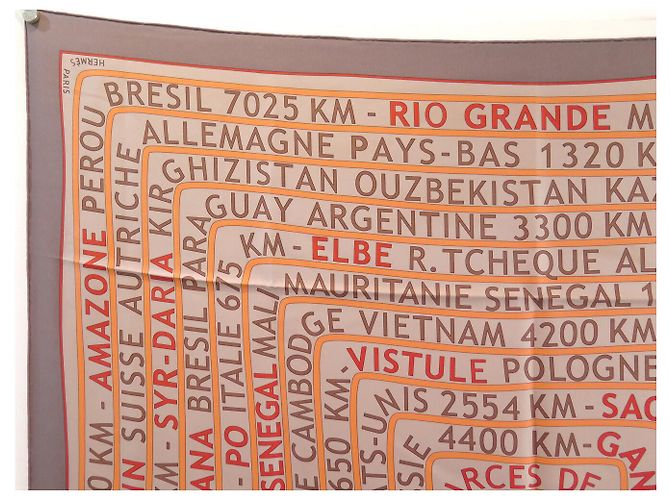 HERMÈS
PARIS
0 KM - AMAZONE PEROU BRESIL 7025 KM - RIO GRANDE M
IN SUISSE AUTRICHE ALLEMAGNE PAYS-BAS 1320 K
KM - SYR-DARA KIRGHIZISTAN OUZBEKISTAN KAZ
ANA BRESIL PARAGUAY ARGENTINE 3300 KM
- PO ITALIE 675 KM - ELBE R.TCHEQUE AL
SENEGAL MALI MAURITANIE SENEGAL 1
E CAMBODGE VIETNAM 4200 KM
650 KM - VISTULE POLOGNE
TS-UNIS 2554 KM - SAO
SIE 4400 KM - GAN
URCES DE